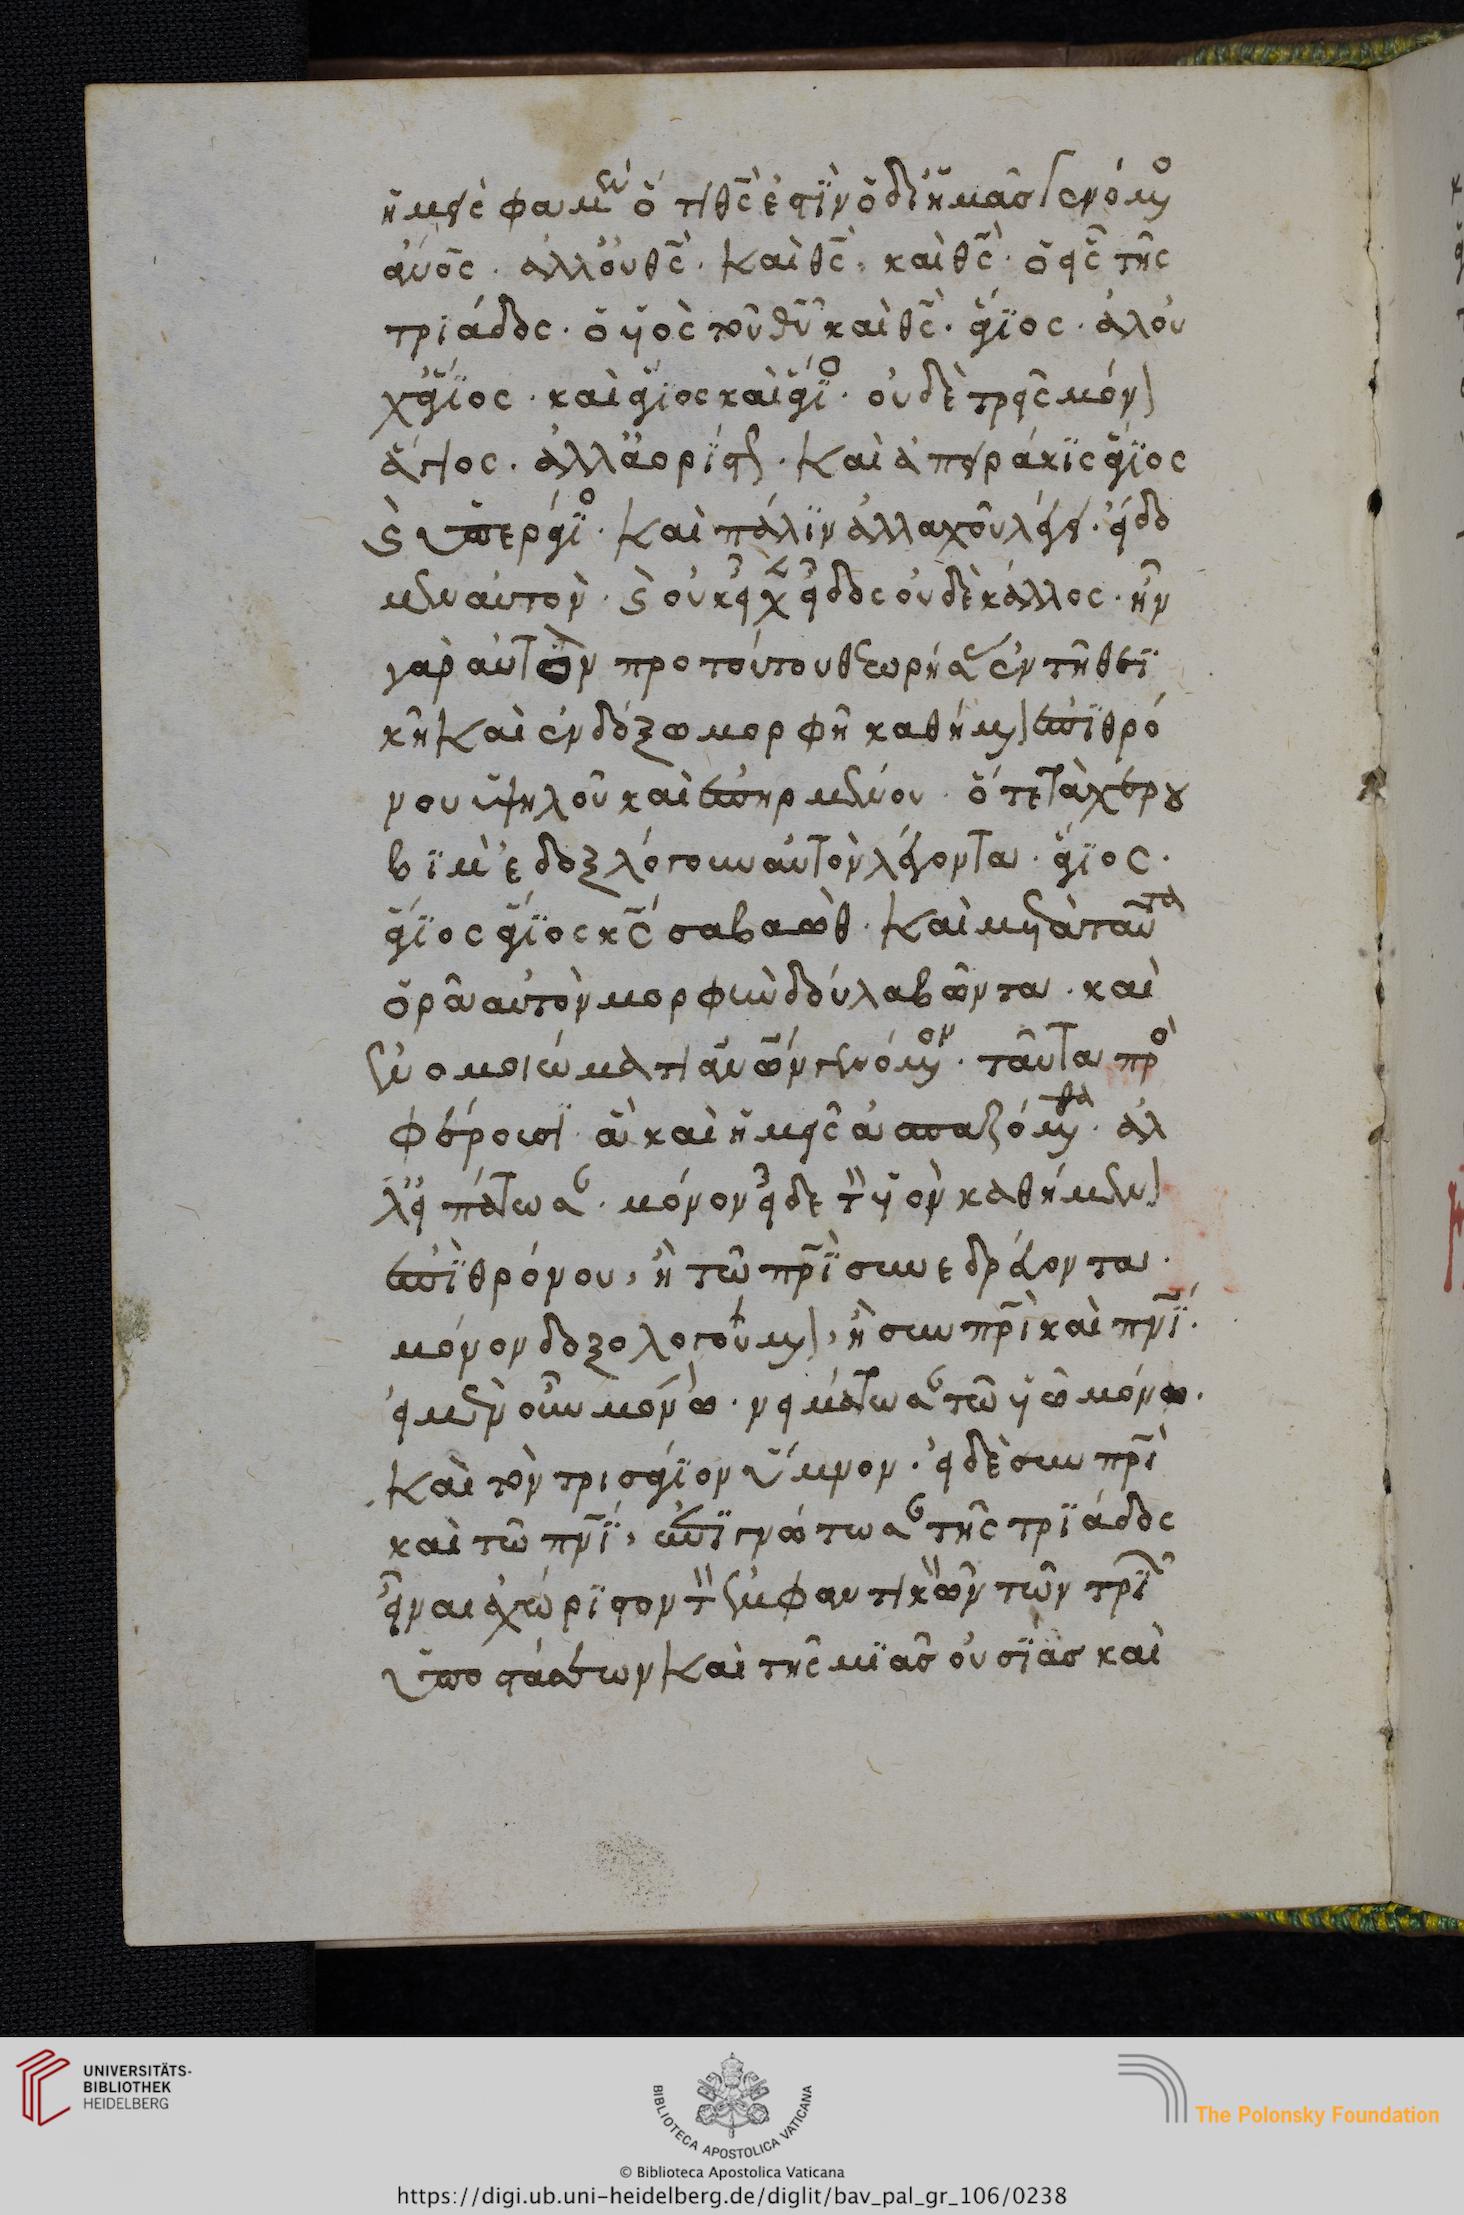 ἡμεῖς φαμὲν ὅτι θς ἐστὶν ὁ δι' ἡμᾶς γενόμενος
ἄνος· ἀλλ' οὐ θς· καὶ θς· καὶ θς· ὁ εἷς τῆς
τριάδος· ὁ υἱὸς τοῦ θυ καὶ θς· ἅγιος· ἀλ' οὐ
χ' ἅγιος· καὶ ἅγιος καὶ ἅγιος· οὐδὲ τρεῖς μόνον
ἅγιος· ἀλλ' ἀορίστως· καὶ ἀπειράκις ἅγιος
καὶ ὑπεράγιος· καὶ πάλιν ἀλλαχοῦ λέγει· εἴδο
μεν αὐτὸν· καὶ οὐκ εἶχεν εἶδος οὐδὲ κάλλος· ἦν
γὰρ αὐτὸν προ τούτου θεωρήσας ἐν τῇ θεϊ
κῇ καὶ ἐνδόξω μορφῇ καθήμενον ἐπὶ θρό
νου ὑψηλοῦ καὶ ἐπηρμένου· ὅτε τὰ χερου
βὶμ ἐδοξλόγουν αὐτὸν λέγοντα· ἅγιος·
ἅγιος ἅγιος κς σαβαὼθ· καὶ μετὰ ταῦτα
ὁρᾶ αὐτὸν μορφὴν δούλαβῶντα· καὶ
ἐν ομοιώματι ἀνων γενόμενον· ταῦτα προ
φέρουσι· ἃ καὶ ἡμεῖς ἀσπαζόμεθα· ἀλ
λ' εἰπάτωσαν· μόνον εἶδε τὸν υἱὸν καθήμενον
ἐπὶ θρόνου, ἢ τῶ πρὶ συνεδράζοντα·
μόνον δοξολογούμενον, ἢ συν πρὶ καὶ πνι·
εἰ μὲν οὖν μόνω· νειμάτωσαν τῶ υἱῶ μόνω·
καὶ τὸν τρισάγιον ὕμνον· εἰ δὲ συν πρὶ
καὶ τῶ πνι, ἐπιγνώτωσαν τῆς τριάδος
εἶναι ἀχώριστον τὸν ἐμφαντικὸν τῶν τριῶν
ὑποστάσεων καὶ τῆς μιᾶς οὐσίας καὶ
UNIVERSITÄTS-
BIBLIOTHEK
HEIDELBERG
BIBLIOTECA APOSTOLICA VATICANA
The Polonsky Foundation
© Biblioteca Apostolica Vaticana
https://digi.ub.uni-heidelberg.de/diglit/bav_pal_gr_106/0238